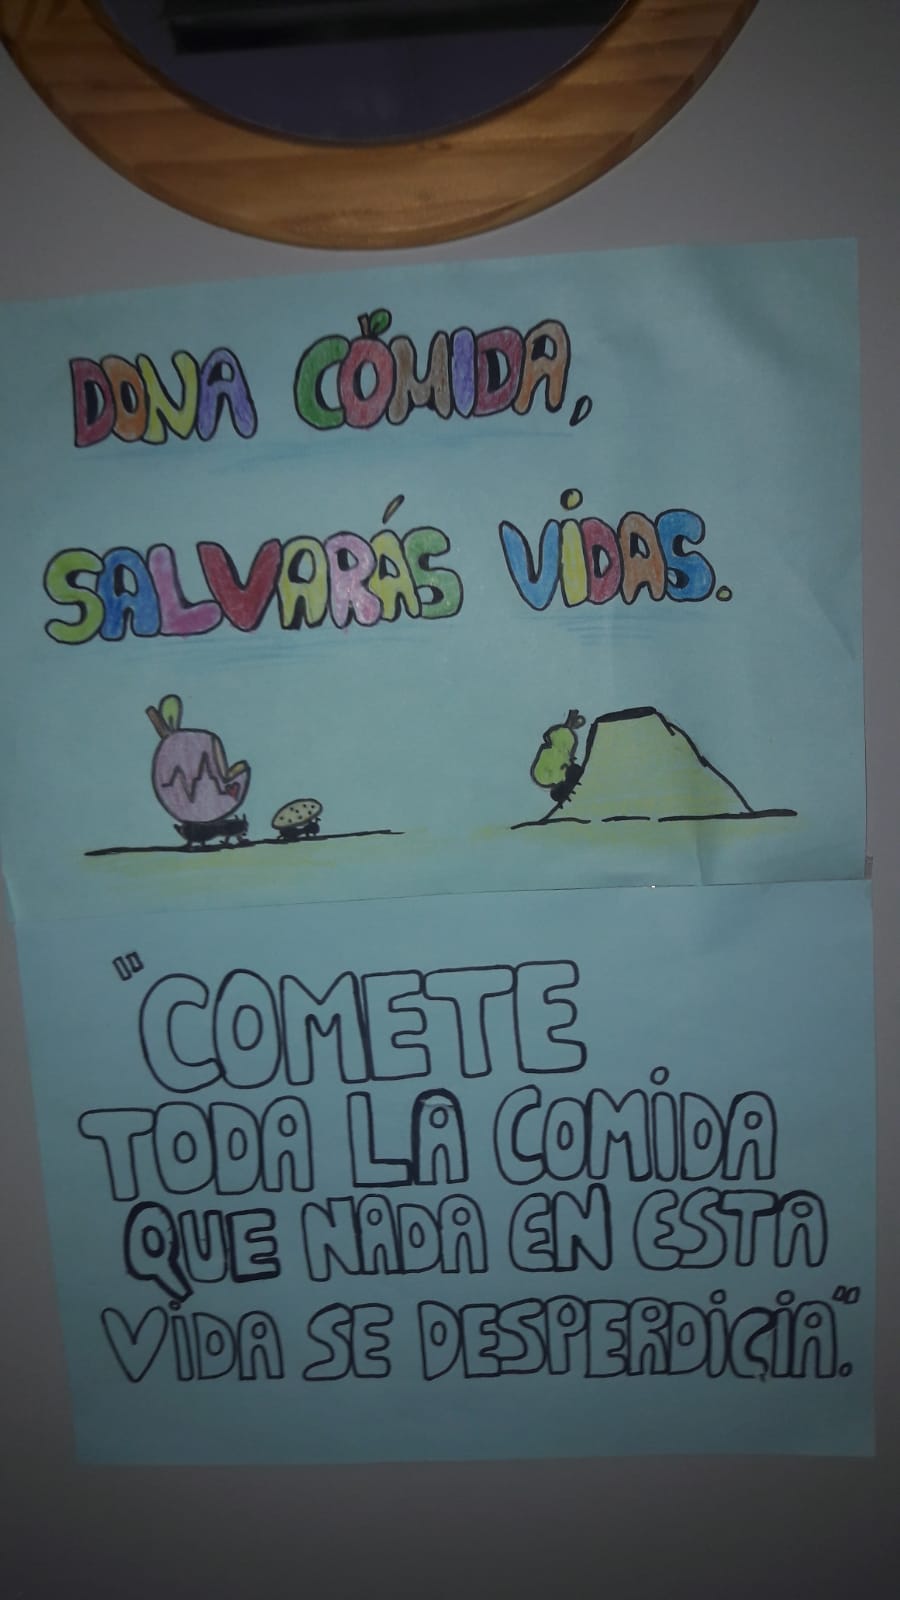 DONA COMIDA,
SALVARÁS VIDAS.
"COMETE
TODA LA COMIDA
QUE NADA EN ESTA
VIDA SE DESPERDICIA".